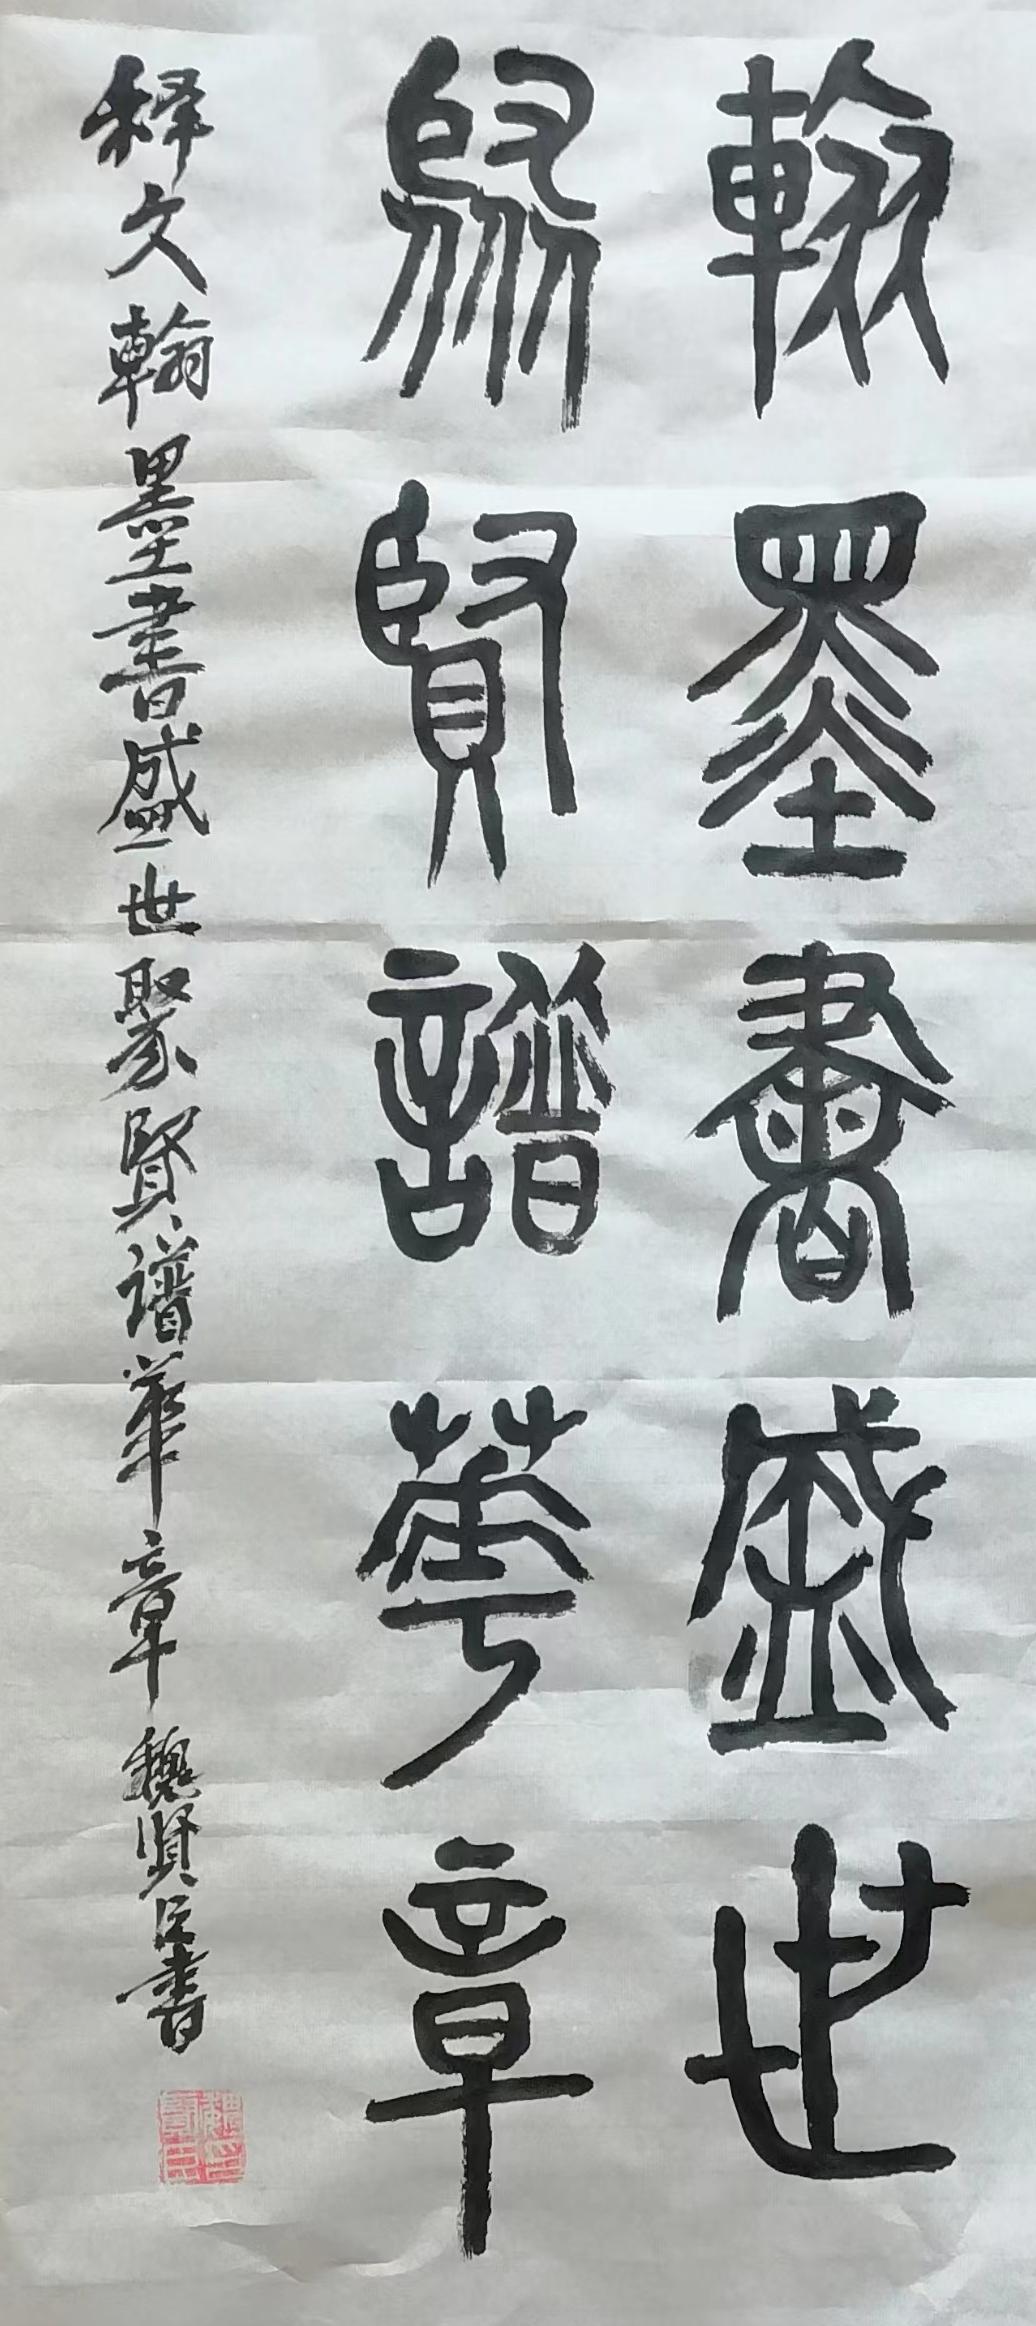 翰墨書盛世
聚賢譜華章
释文翰墨書盛世聚賢譜華章魏贤臣書